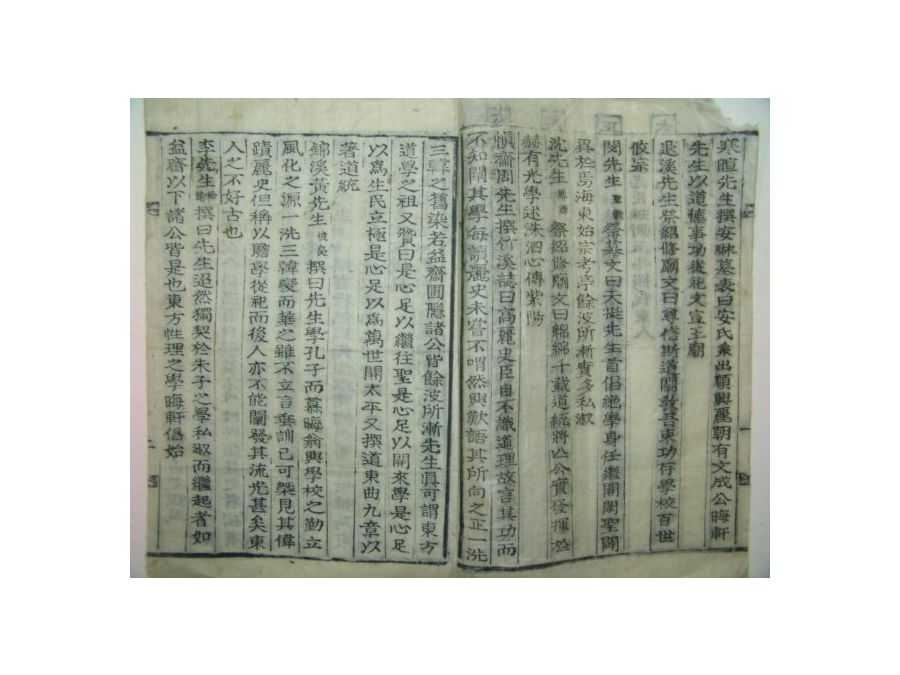 寒暄先生撰安琳墓表曰安氏系出順興麗朝有文成公晦軒
先生以道德事功從祀文宣王廟
退溪先生祭紹修廟文曰尊信斯道闡敎吾東功存學校百世
攸宗
閔先生聖徽祭墓文曰天挺先生首倡絶學身任繼開闢聖闢
異於焉海東始宗考亭餘波所漸實多私淑
沈先生 祭紹修廟文曰綿綿千載道統將公實發揮於
赫有光學述洙泗心傳紫陽
愼齋周先生撰竹溪誌曰高麗史臣自不識道理故言其功而
不知闡其學每讀麗史未嘗不喟然興歎語其所向之正一洗
三韓之舊染若益齋圃隱諸公皆餘波所漸先生眞可謂東方
道學之祖又贊曰是心足以繼往聖是心足以開來學是心足
以爲生民立極是心足以爲萬世開太平又撰道東曲九章以
著道統
錦溪黃先生俊良撰曰先生學孔子而慕晦翁興學校之勤立
風化之源一洗三韓變而華之雖不立言垂訓已可槩見其偉
蹟麗史但稱以贍學從祀而後人亦不能闡發其流光甚矣東
人之不好古也
李先生 撰曰先生迢然獨契於朱子之學私淑而繼起者如
益齋以下諸公皆是也東方性理之學晦軒倡始